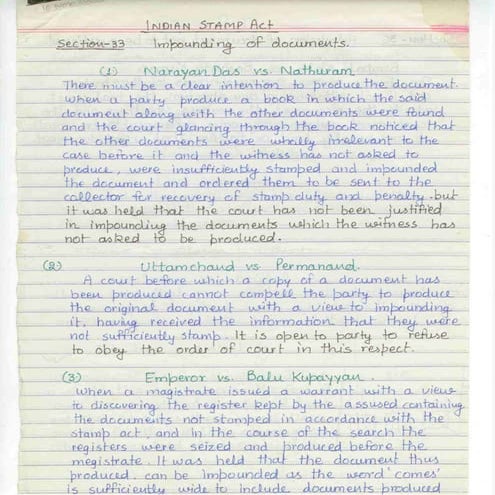 INDIAN STAMP ACT
Section-33 Impounding of documents.
(1) Narayan Das vs. Nathuram
There must be a clear intention to produce the document.
When a party produce a book in which the said
document along with the other documents were found
and the court glancing through the book noticed that
the other documents were wholly irrelevant to the
case before it and the witness has not asked to
produce, were insufficiently stamped and impounded
the document and ordered them to be sent to the
collector for recovery of stamp duty and penalty. but
it was held that the court has not been justified
in impounding the documents which the witness has
not asked to be produced.
(2) Uttamchand vs. Permanand.
A court before which a copy of a document has
been produced cannot compell the party to produce
the original document with a view to impounding
it, having received the information that they were
not sufficiently stamp. It is open to party to refuse
to obey the order of court in this respect.
(3) Emperor vs. Balu Kupayyan.
When a magistrate issued a warrant with a view
to discovering the register kept by the assused containing
the documents not stamped in accordance with the
stamp act, and in the course of the search the
registers were seized and produced before the
megistrate. It was held that the document thus
produced. can be impounded as the word 'comes'
is sufficiently wide to include documents produced